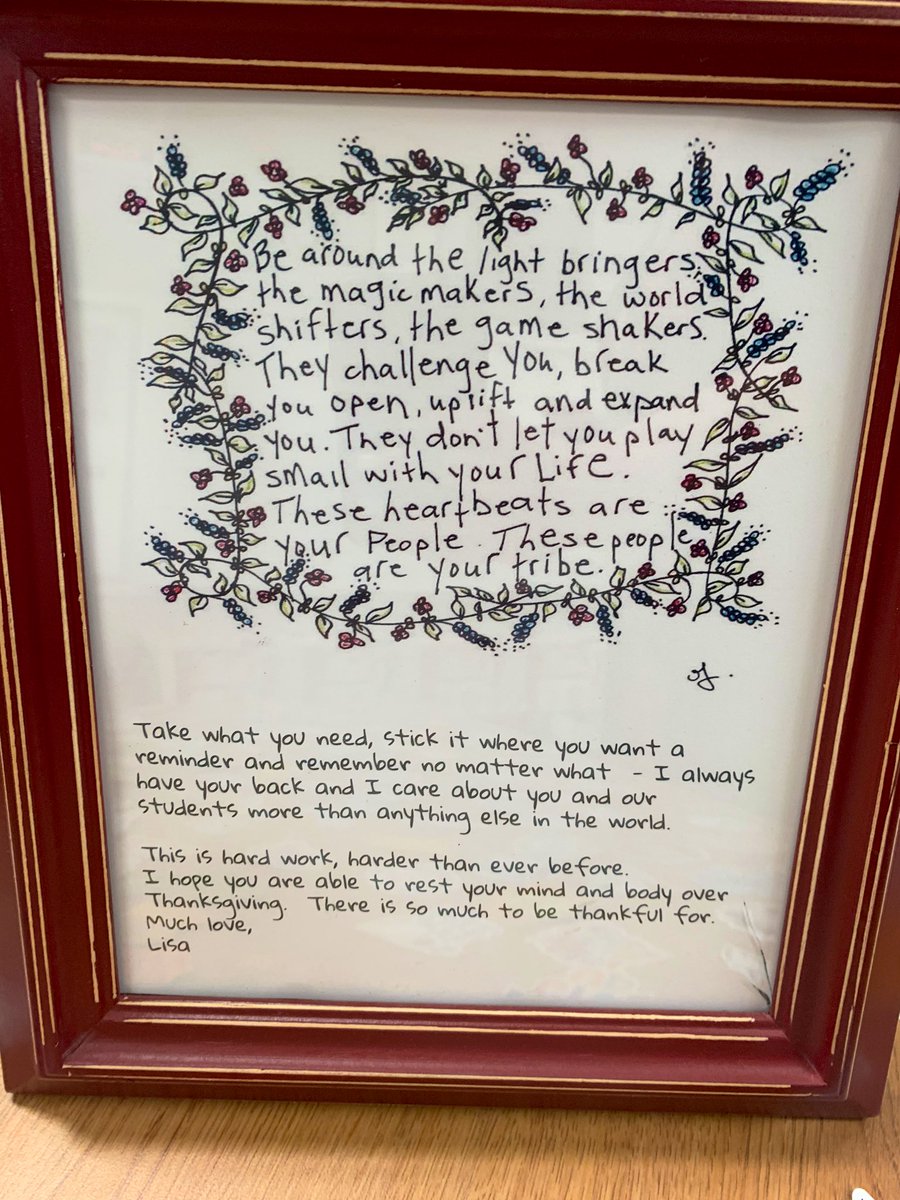 Be around the light bringers,
the magic makers, the world
shifters, the game shakers.
They challenge you, break
you open, uplift and expand
you. They don't let you play
small with your Life.
These heartbeats are
your People. These people
are your tribe.
Take what you need, stick it where you want a
reminder and remember no matter what - I always
have your back and I care about you and our
students more than anything else in the world.
This is hard work, harder than ever before.
I hope you are able to rest your mind and body over
Thanksgiving. There is so much to be thankful for.
Much love,
Lisa